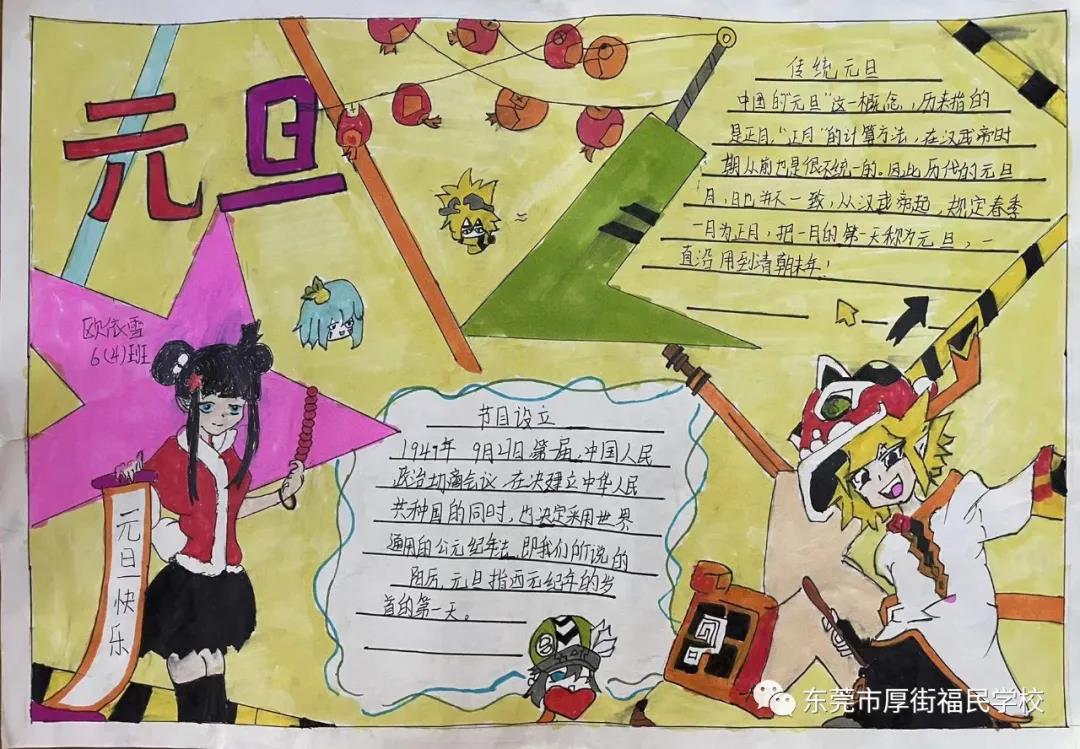 元旦
传统元旦
中国的"元旦"这一概念，历来指的
是正月."正月"的计算方法，在汉武帝时
期从前也是很不统一的。因此历代的元旦
月，日也并不一致，从汉武帝起，规定春季
一月为正月，把一月的第一天称为元旦，一
直沿用到清朝末年！
欧依雪
6(4)班
节目设立
1949年 9月27日第一届，中国人民
政治协商会议，在决建立中华人民
共和国的同时，也决定采用世界
通用的公元纪年法，即我们所说的
阳历，元旦指西元纪年的岁
首的第一天。
元旦快乐
东莞市厚街福民学校